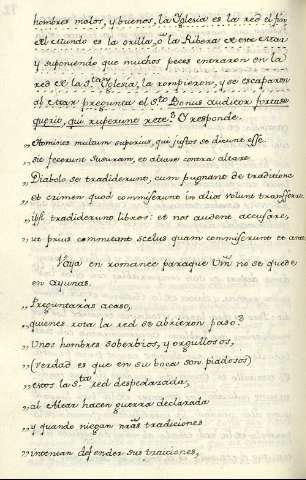 hombres malos, y buenos, la Yglesia es la red el fin
el Mundo es la orilla, ô la Ribera de este Mar
y suponiendo que muchos peces entraron en la
red de la s.ta Yglesia, la rompieron, y se escaparon
al Mar pregunta el S.to Bonus auditor fortasse
querit, qui ruperunt rete? Y responde.
„Homines multum superui, qui justos se dicunt esse.
„sic fecerunt scissuram, et altare contra altare
„Diabolo se tradiderunt, cum pugnant de traditione
„et crimen quod commiserunt in alios volunt transferre.
„ipsi tradiderunt libros: et nos audent accusare,
„ut peius committant scelus quam commiserunt et ante
Vaya en romance paraque Vm. no se quede
en ayunas.
„Preguntaràs acaso,
„quienes rota la red se abrieron paso?
„Unos hombres soberbios, y orgullosos,
„(verdad es que en su boca son piadosos)
„estos la s.ta red despedazada,
„al Altar hacen guerra declarada
„y quando niegan nr̃as tradiciones
„intentan defender sus traiciones,